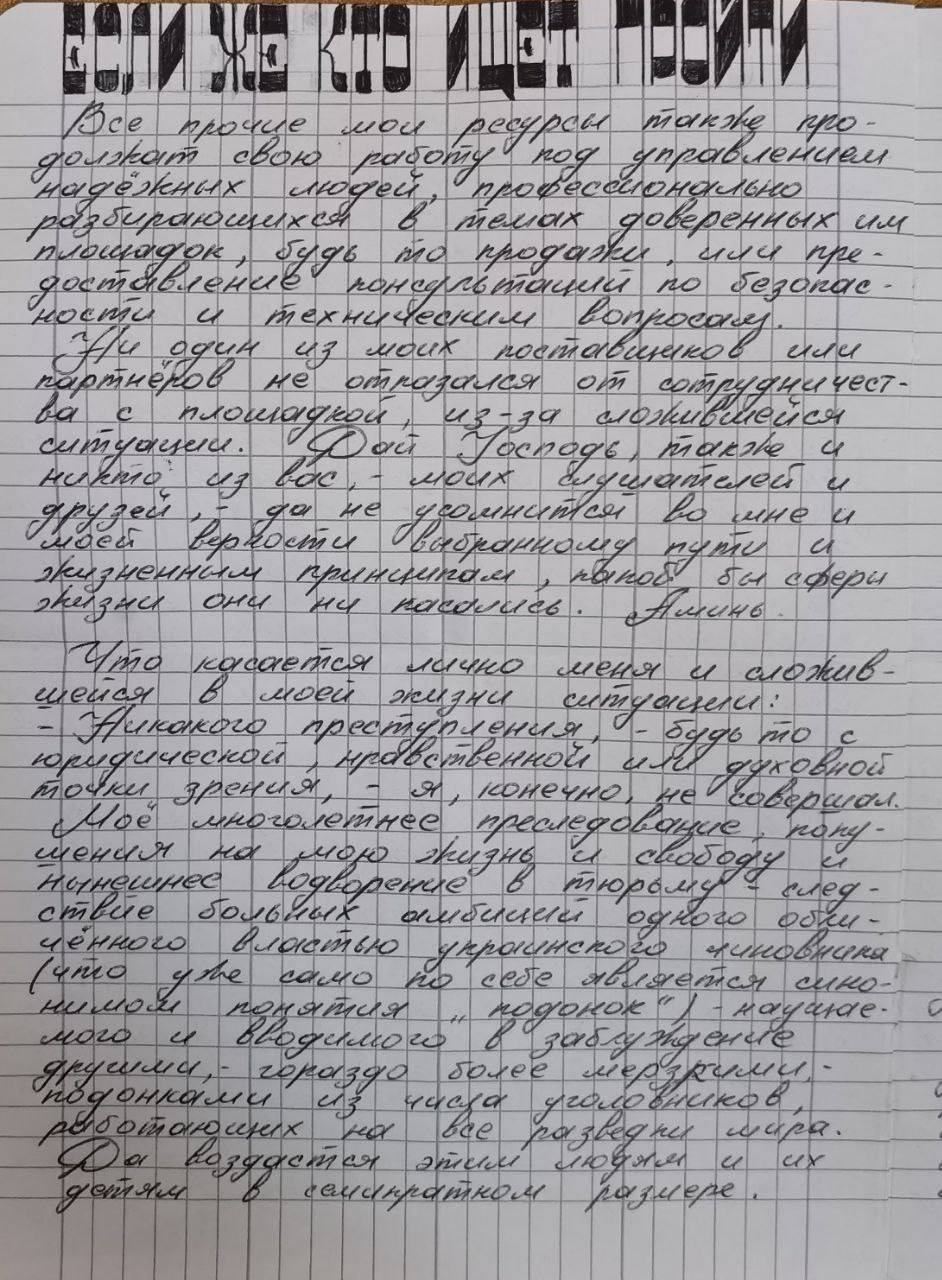 ЕСЛИ ЖЕ КТО ИЩЕТ ПРОЙТИ
Все прочие мои ресурсы также про-
должат свою работу под управлением
надёжных людей, профессионально
разбирающихся в темах доверенных им
площадок, будь то продажи, или пре-
доставление консультаций по безопас-
ности и техническим вопросам.
Ни один из моих поставщиков или
партнёров не отказался от сотрудничест-
ва с площадкой, из-за сложившейся
ситуации. Дай Господь, также и
никто из вас, - моих слушателей и
друзей, - да не усомнится во мне и
моей верности выбранному пути и
жизненным принципам, какой бы сферы
жизни они ни касались. Аминь.
Что касается лично меня и сложив-
шейся в моей жизни ситуации:
- Никакого преступления, - будь то с
юридической, нравственной или духовной
точки зрения, - я, конечно, не совершал.
Моё многолетнее преследование, поку-
шения на мою жизнь и свободу и
нынешнее водворение в тюрьму - след-
ствие больных амбиций одного обле-
чённого властью украинского чиновника
(что уже само по себе является сино-
нимом понятия „подонок“) - научае-
мого и вводимого в заблуждение
другими, - гораздо более мерзкими, -
подонками из числа уголовников,
работающих на все разведки мира.
Да воздастся этим людям и их
детям в семикратном размере.